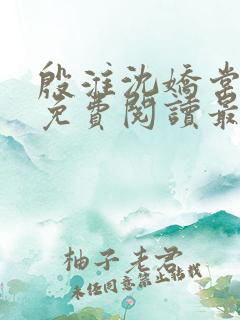 殷淮沈嬌棠
免費閱讀最
柚子老君
未经同意禁止转载